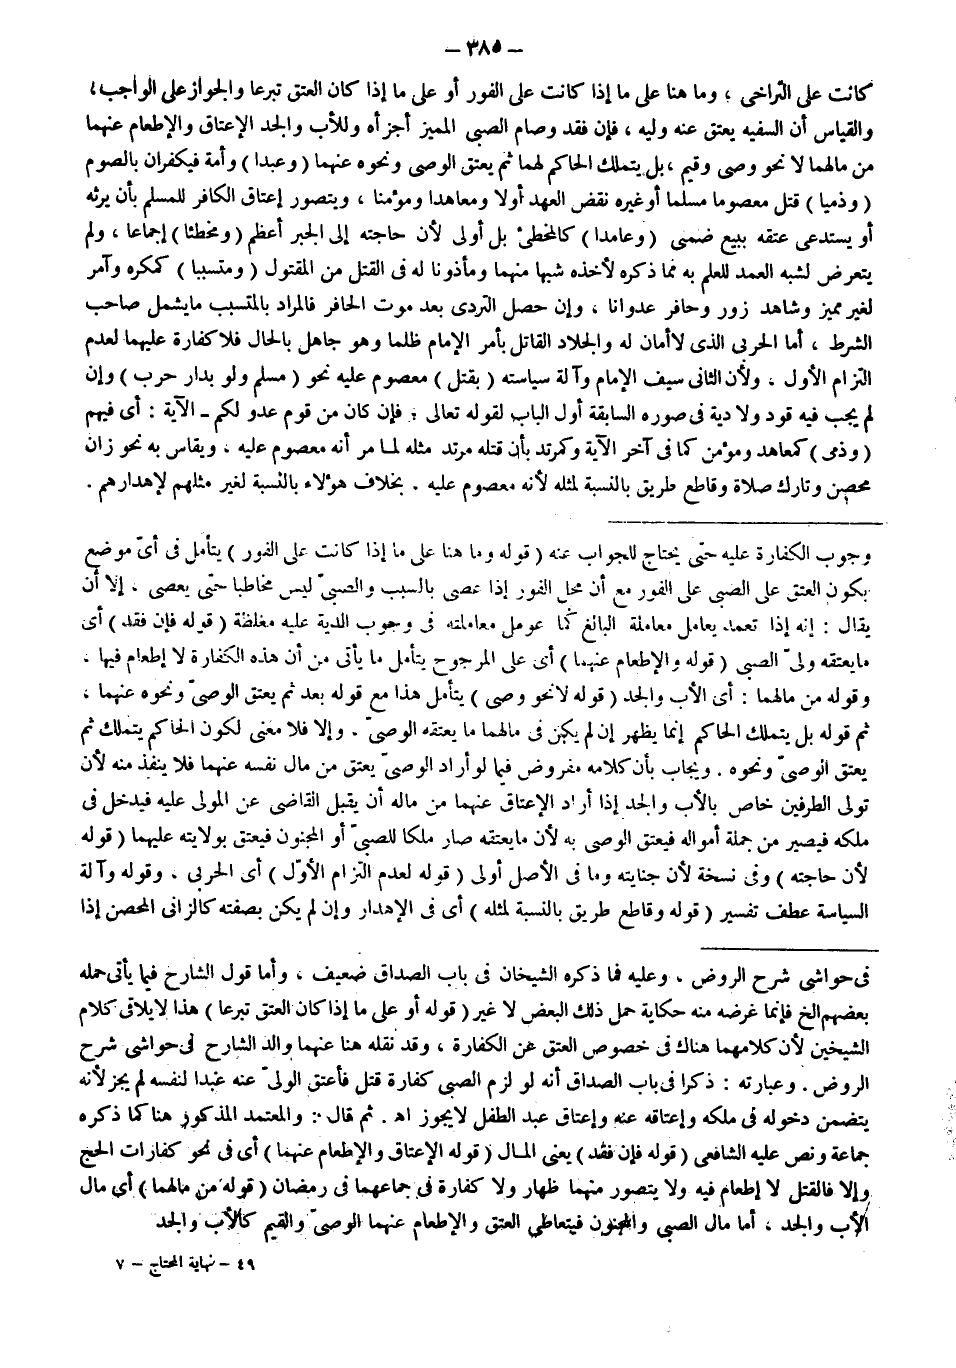 — ٣٨٥ —
كانت على التراخى ، وما هنا على ما إذا كانت على الفور أو على ما إذا كان العتق تبرعا والجواز على الواجب ،
والقياس أن السفيه يعتق عنه وليه ، فإن فقد وصام الصبى المميز أجزأه وللأب والجد الإعتاق والإطعام عنهما
من مالهما لا نحو وصى وقيم ، بل يتملك الحاكم لهما ثم يعتق الوصى ونحوه عنهما ( وعبدا ) وأمة فيكفران بالصوم
( وذميا ) قتل معصوما مسلما أو غيره نقض العهد أولا ومعاهدا ومؤمنا ، ويتصور إعتاق الكافر للمسلم بأن يرثه
أو يستدعى عتقه ببيع ضمنى ( وعامدا ) كالمخطئ بل أولى لأن حاجته إلى الجبر أعظم ( ومخطئا ) إجماعا ، ولم
يتعرض لشبه العمد للعلم به مما ذكره لأخذه شبها منهما ومأذونا له فى القتل من المقتول ( ومتسببا ) كمكره وآمر
لغير مميز وشاهد زور وحافر عدوانا ، وإن حصل التردى بعد موت الحافر فالمراد بالمتسبب مايشمل صاحب
الشرط ، أما الحربى الذى لاأمان له والجلاد القاتل بأمر الإمام ظلما وهو جاهل بالحال فلا كفارة عليهما لعدم
التزام الأول ، ولأن الثانى سيف الإمام وآلة سياسته ( بقتل ) معصوم عليه نحو ( مسلم ولو بدار حرب ) وإن
لم يجب فيه قود ولا دية فى صوره السابقة أول الباب لقوله تعالى : فإن كان من قوم عدو لكم ـ الآية : أى فيهم
( وذمى ) كمعاهد ومؤمن كما فى آخر الآية وكمرتد بأن قتله مرتد مثله لما مر أنه معصوم عليه ، ويقاس به نحو زان
محصن وتارك صلاة وقاطع طريق بالنسبة لمثله لأنه معصوم عليه . بخلاف هؤلاء بالنسبة لغير مثلهم لإهدارهم .
وجوب الكفارة عليه حتى يحتاج للجواب عنه ( قوله وما هنا على ما إذا كانت على الفور ) يتأمل فى أىّ موضع
يكون العتق على الصبى على الفور مع أن محل الفور إذا عصى بالسبب والصبىّ ليس مخاطبا حتى يعصى . إلا أن
يقال : إنه إذا تعمد يعامل معاملة البالغ كما عومل معاملته فى وجوب الدية عليه مغلظة ( قوله فإن فقد ) أى
مايعتقه ولىّ الصبى ( قوله والإطعام عنهما ) أى على المرجوح يتأمل ما يأتى من أن هذه الكفارة لا إطعام فيها ،
وقوله من مالهما : أى الأب والجد ( قوله لانحو وصى ) يتأمل هذا مع قوله بعد ثم يعتق الوصىّ ونحوه عنهما ،
ثم قوله بل يتملك الحاكم إنما يظهر إن لم يكن فى مالهما ما يعتقه الوصىّ . وإلا فلا معنى لكون الحاكم يتملك ثم
يعتق الوصىّ ونحوه . ويجاب بأن كلامه مفروض فيما لو أراد الوصىّ يعتق من مال نفسه عنهما فلا ينفذ منه لأن
تولى الطرفين خاص بالأب والجد إذا أراد الإعتاق عنهما من ماله أن يقبل القاضى عن المولى عليه فيدخل فى
ملكه فيصير من جملة أمواله فيعتق الوصى به لأن مايعتقه صار ملكا للصبىّ أو المجنون فيعتق بولايته عليهما ( قوله
لأن حاجته ) وفى نسخة لأن جنايته وما فى الأصل أولى ( قوله لعدم التزام الأوّل ) أى الحربى ، وقوله وآلة
السياسة عطف تفسير ( قوله وقاطع طريق بالنسبة لمثله ) أى فى الإهدار وإن لم يكن بصفته كالزانى المحصن إذا
فى حواشى شرح الروض ، وعليه فما ذكره الشيخان فى باب الصداق ضعيف ، وأما قول الشارح فيما يأتى حمله
بعضهم الخ فإنما غرضه منه حكاية حمل ذلك البعض لا غير ( قوله أو على ما إذا كان العتق تبرعا ) هذا لايلاقى كلام
الشيخين لأن كلامهما هناك فى خصوص العتق عن الكفارة ، وقد نقله هنا عنهما والد الشارح فى حواشى شرح
الروض . وعبارته : ذكرا فى باب الصداق أنه لو لزم الصبى كفارة قتل فأعتق الولىّ عنه عبدا لنفسه لم يجز لأنه
يتضمن دخوله فى ملكه وإعتاقه عنه وإعتاق عبد الطفل لايجوز اه . ثم قال : والمعتمد المذكور هنا كما ذكره
جماعة ونص عليه الشافعى ( قوله فإن فقد ) يعنى المال ( قوله الإعتاق والإطعام عنهما ) أى فى نحو كفارات الحج
وإلا فالقتل لا إطعام فيه ولا يتصور منهما ظهار ولا كفارة فى جماعهما فى رمضان ( قوله من مالهما ) أى مال
الأب والجد ، أما مال الصبى والمجنون فيتعاطى العتق والإطعام عنهما الوصىّ والقيم كالأب والجد
٤٩ – نهاية المحتاج – ٧